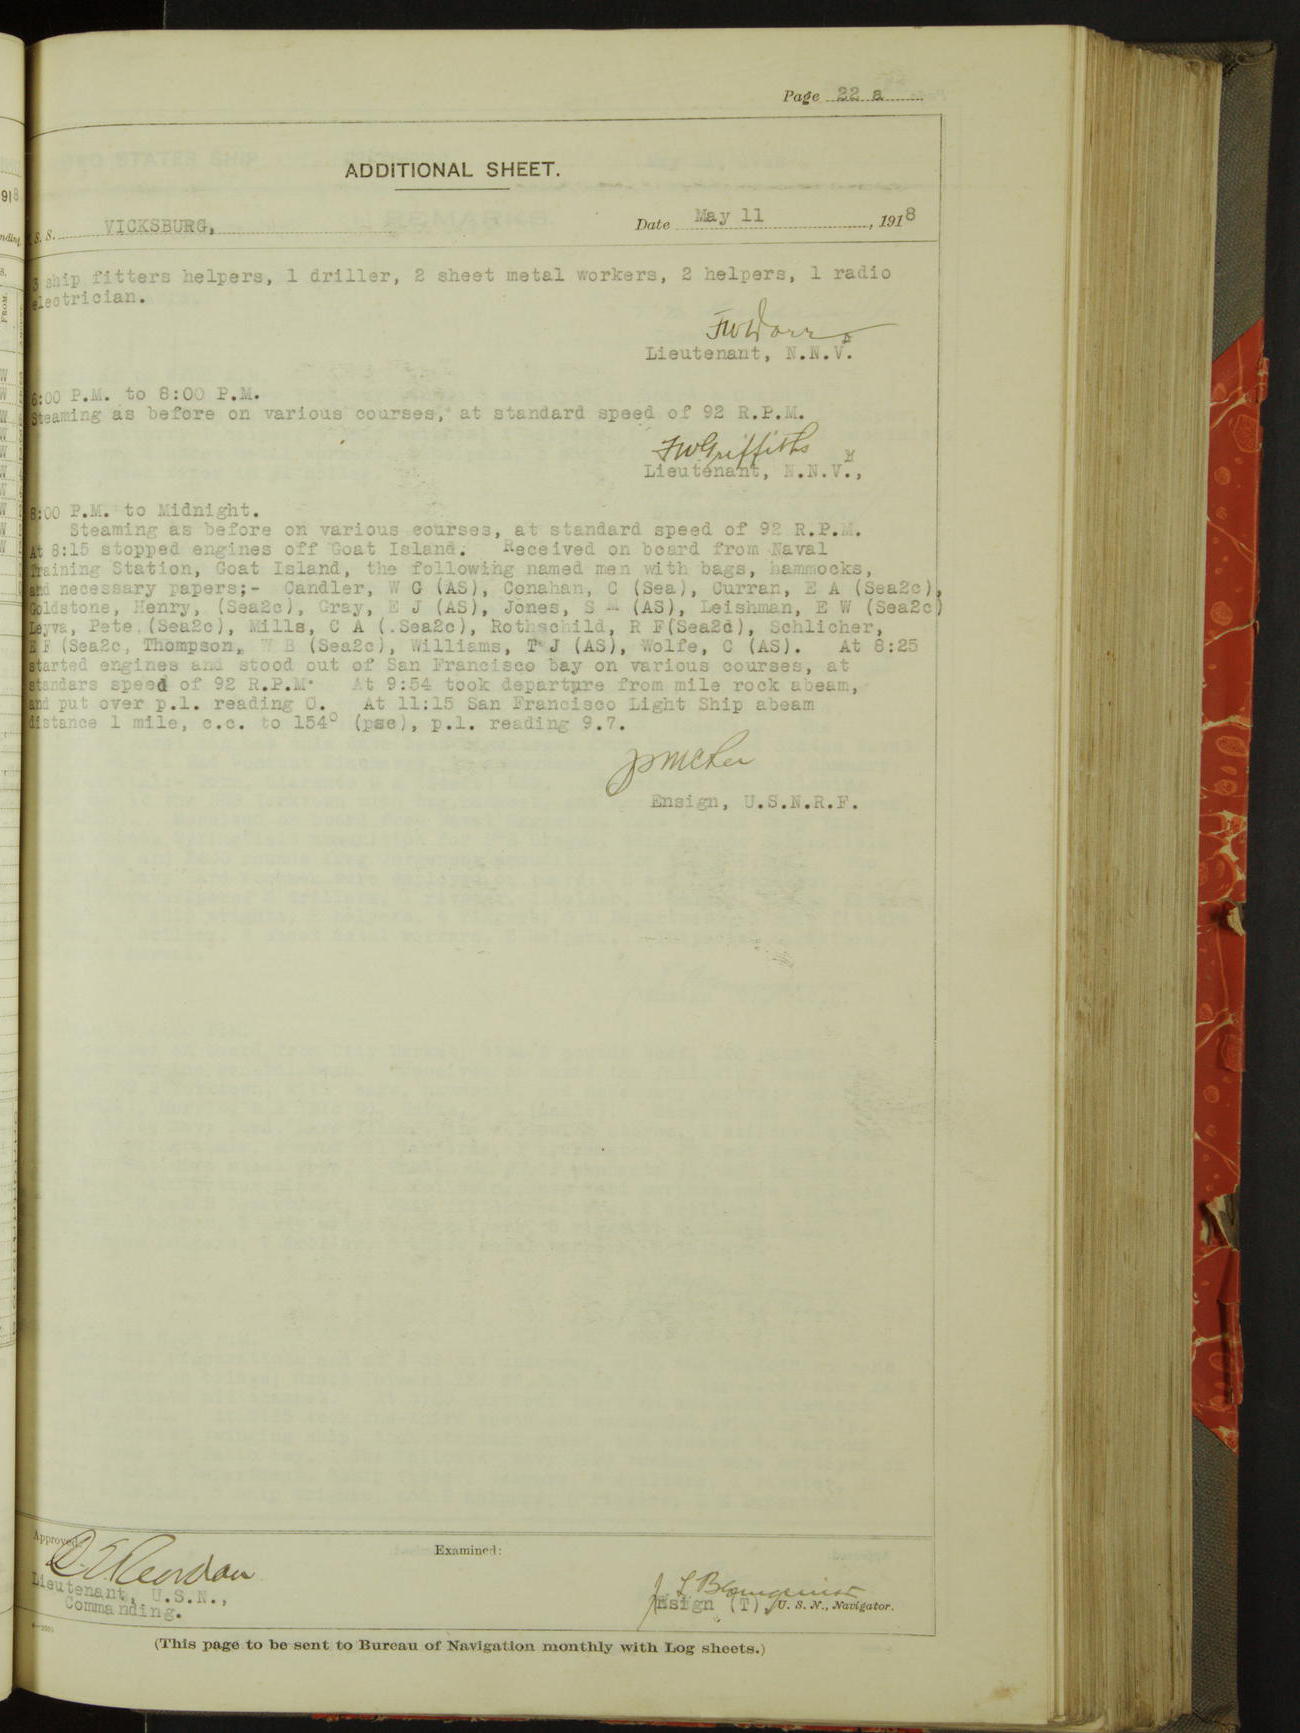 Page 22 a
ADDITIONAL SHEET.
S. S. VICKSBURG, Date May 11, 1918
3 ship fitters helpers, 1 driller, 2 sheet metal workers, 2 helpers, 1 radio
electrician.
Lieutenant, N.N.V.
6:00 P.M. to 8:00 P.M.
Steaming as before on various courses, at standard speed of 92 R.P.M.
FWGriffiths
Lieutenant, N.N.V.,
8:00 P.M. to Midnight.
Steaming as before on various courses, at standard speed of 92 R.P.M.
At 8:15 stopped engines off Goat Island. Received on board from Naval
Training Station, Goat Island, the following named men with bags, hammocks,
and necessary papers;- Candler, W G (AS), Conahan, C (Sea), Curran, E A (Sea2c),
Goldstone, Henry, (Sea2c), Gray, E J (AS), Jones, S - (AS), Leishman, E W (Sea2c)
Leyva, Pete (Sea2c), Mills, C A (.Sea2c), Rothschild, R F(Sea2c), Schlicher,
E F (Sea2c, Thompson, W B (Sea2c), Williams, T J (AS), Wolfe, C (AS). At 8:25
started engines and stood out of San Francisco bay on various courses, at
standars speed of 92 R.P.M. At 9:54 took departure from mile rock abeam,
and put over p.l. reading 0. At 11:15 San Francisco Light Ship abeam
distance 1 mile, c.c. to 154° (psc), p.l. reading 9.7.
Ensign, U.S.N.R.F.
Approved: Examined:
Lieutenant, U.S.N.,
Commanding.
J L Blomquist
Ensign (T), U. S. N., Navigator.
(This page to be sent to Bureau of Navigation monthly with Log sheets.)